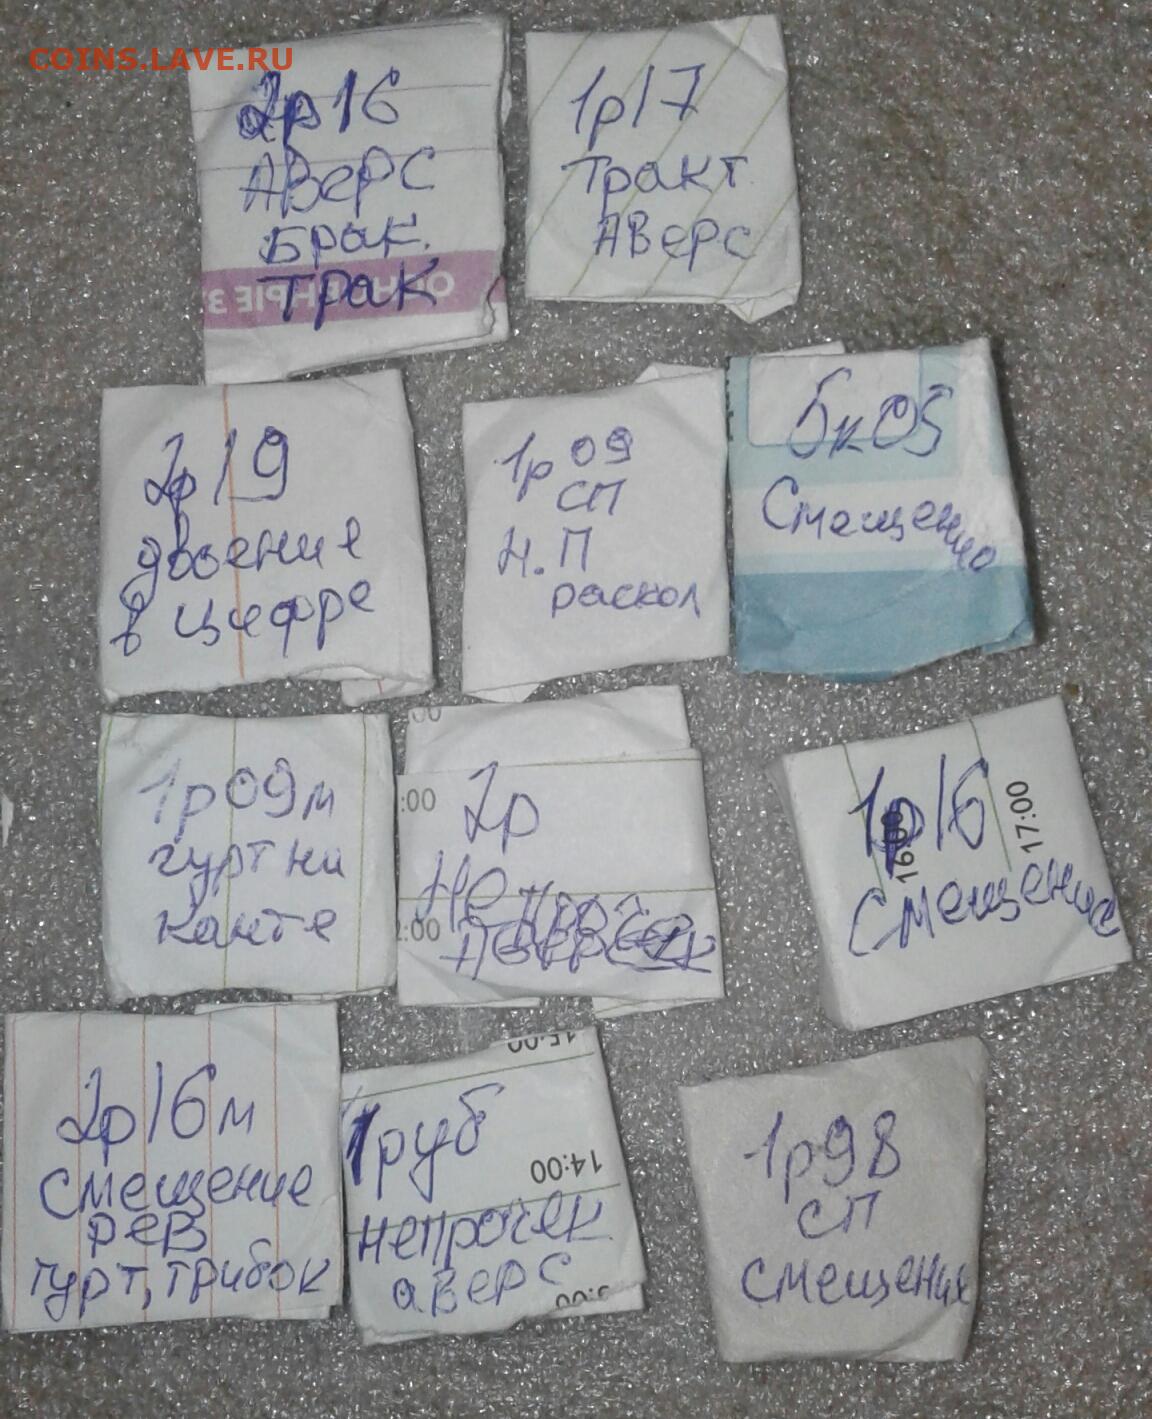 COINS.LAVE.RU
2р16
АВерс
Брак.
Трак
1р17
Тракт
АВерс
2р19
двоение
в цифре
1р09
СП
Н.П
раскол
5к05
Смещение
1р09м
гурт на
канте
:00
2р
Не
2:00
1р16
16:00
17:00
Смещение
2р16м
Смещение
рев
гурт, грибок
15:00
1руб
14:00
непрочек
аверс
1р98
СП
смещение